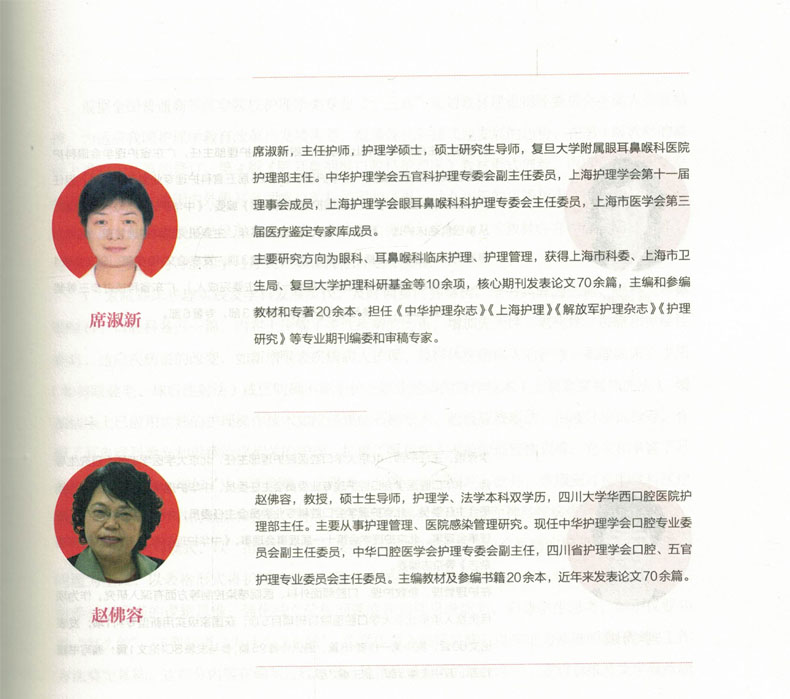 席淑新，主任护师，护理学硕士，硕士研究生导师，复旦大学附属眼耳鼻喉科医院
护理部主任。中华护理学会五官科护理专委会副主任委员，上海护理学会第十一届
理事会成员，上海护理学会眼耳鼻喉科科护理专委会主任委员，上海市医学会第三
届医疗鉴定专家库成员。
主要研究方向为眼科、耳鼻喉科临床护理、护理管理，获得上海市科委、上海市卫
生局、复旦大学护理科研基金等10余项，核心期刊发表论文70余篇，主编和参编
教材和专著20余本。担任《中华护理杂志》《上海护理》《解放军护理杂志》《护理
研究》等专业期刊编委和审稿专家。
席淑新
赵佛容，教授，硕士生导师，护理学、法学本科双学历，四川大学华西口腔医院护
理部主任。主要从事护理管理、医院感染管理研究。现任中华护理学会口腔专业委
员会副主任委员，中华口腔医学会护理专委会副主任，四川省护理学会口腔、五官
护理专业委员会主任委员。主编教材及参编书籍20余本，近年来发表论文70余篇。
赵佛容